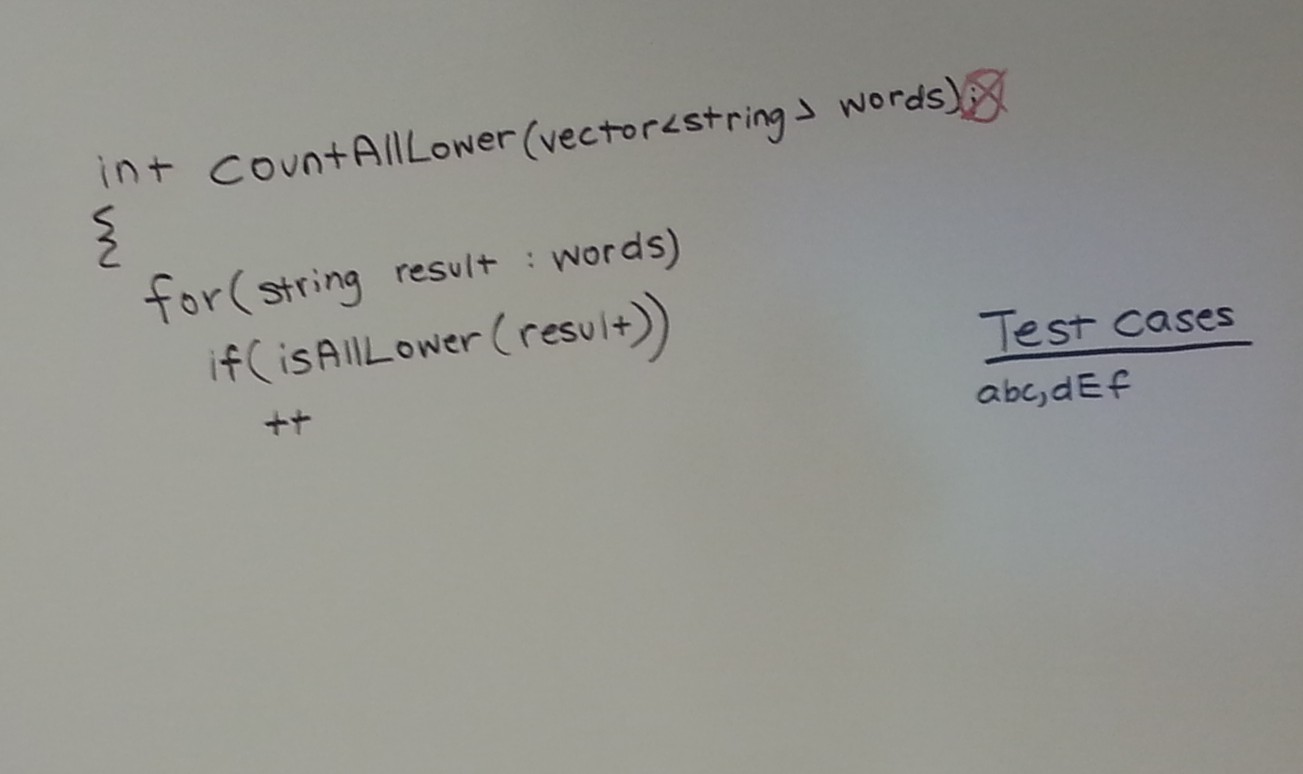 int countAllLower(vector<string> words);
{
for(string result : words)
if(isAllLower(result))
++
Test cases
abc,dEf